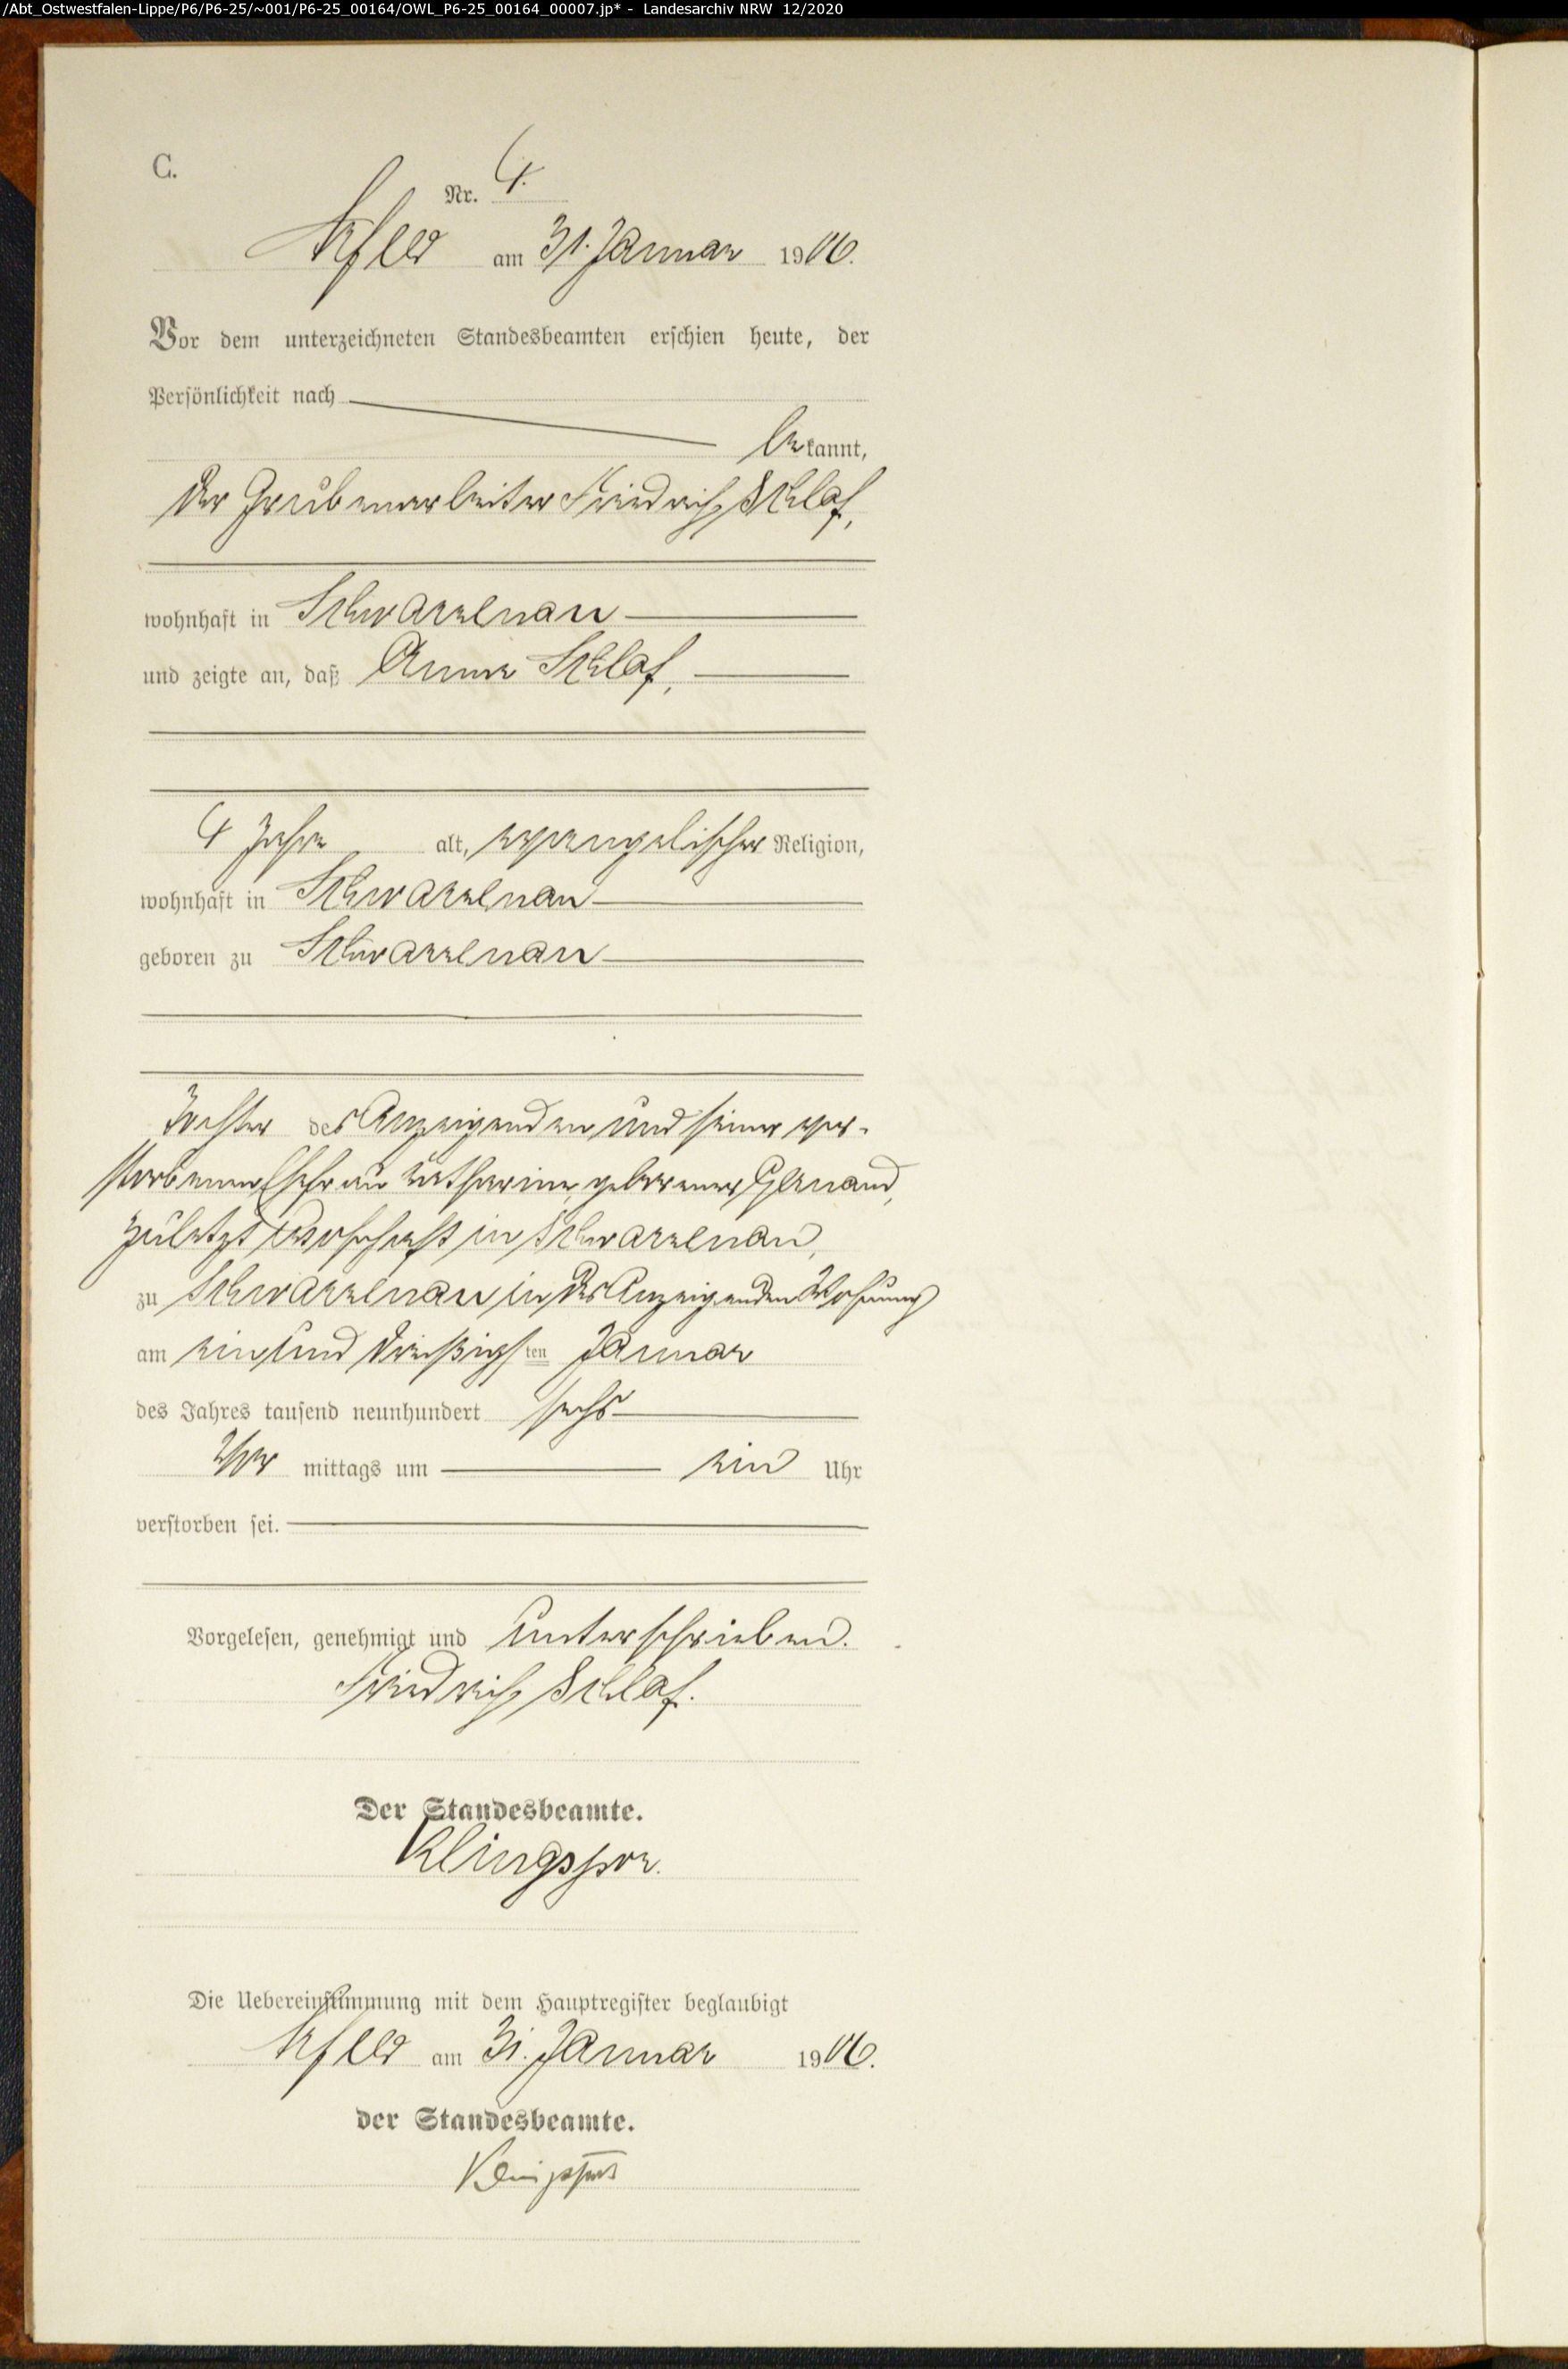 /Abt_Ostwestfalen-Lippe/P6/P6-25/~001/P6-25_00164/OWL_P6-25_00164_00007.jp* - Landesarchiv NRW 12/2020
C.
Nr. 4.
Arfeld am 31. Januar 1906.
Vor dem unterzeichneten Standesbeamten erschien heute, der
Persönlichkeit nach
bekannt,
der Grubenarbeiter Friedrich Schlaf,
wohnhaft in Schwarzenau
und zeigte an, daß Anna Schlaf,
4 Jahre alt, evangelischer Religion,
wohnhaft in Schwarzenau
geboren zu Schwarzenau
Tochter des Anzeigenden und seiner ver-
storbenen Ehefrau Katharine, geborener
zuletzt wohnhaft in Schwarzenau,
zu Schwarzenau in des Anzeigenden Wohnung
am ein und dreißigsten Januar
des Jahres tausend neunhundert sechs
Vor mittags um ein Uhr
verstorben sei.
Vorgelesen, genehmigt und unterschrieben.
Friedrich Schlaf.
Der Standesbeamte.
Klingspor.
Die Uebereinstimmung mit dem Hauptregister beglaubigt
Arfeld am 31. Januar 1906.
der Standesbeamte.
Klingspor